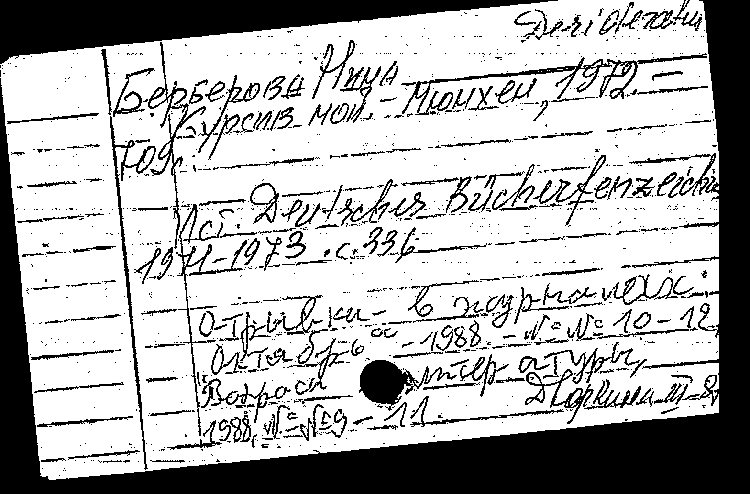 Desiderata
Берберова Нина
Курсив мой. - Мюнхен, 1972. -
709с.
Ист. Deutsches Bücherferzeichnis
1971-1973. с. 336
Отрывки - в журналах:
"Октябрь" - 1988 - №№ 10-12,
"Вопросы литературы,
1988, №№ 9 - 11.